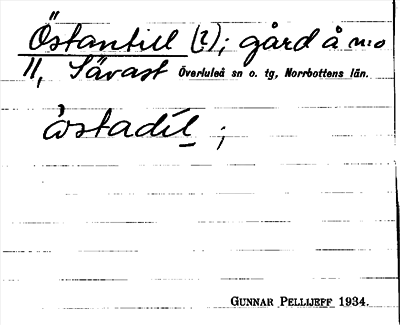 Östantill (?); gård å n:o
11, Sävast Överluleå sn o. tg, Norrbottens län.
åstadíl ;
GUNNAR PELLIJEFF 1934.